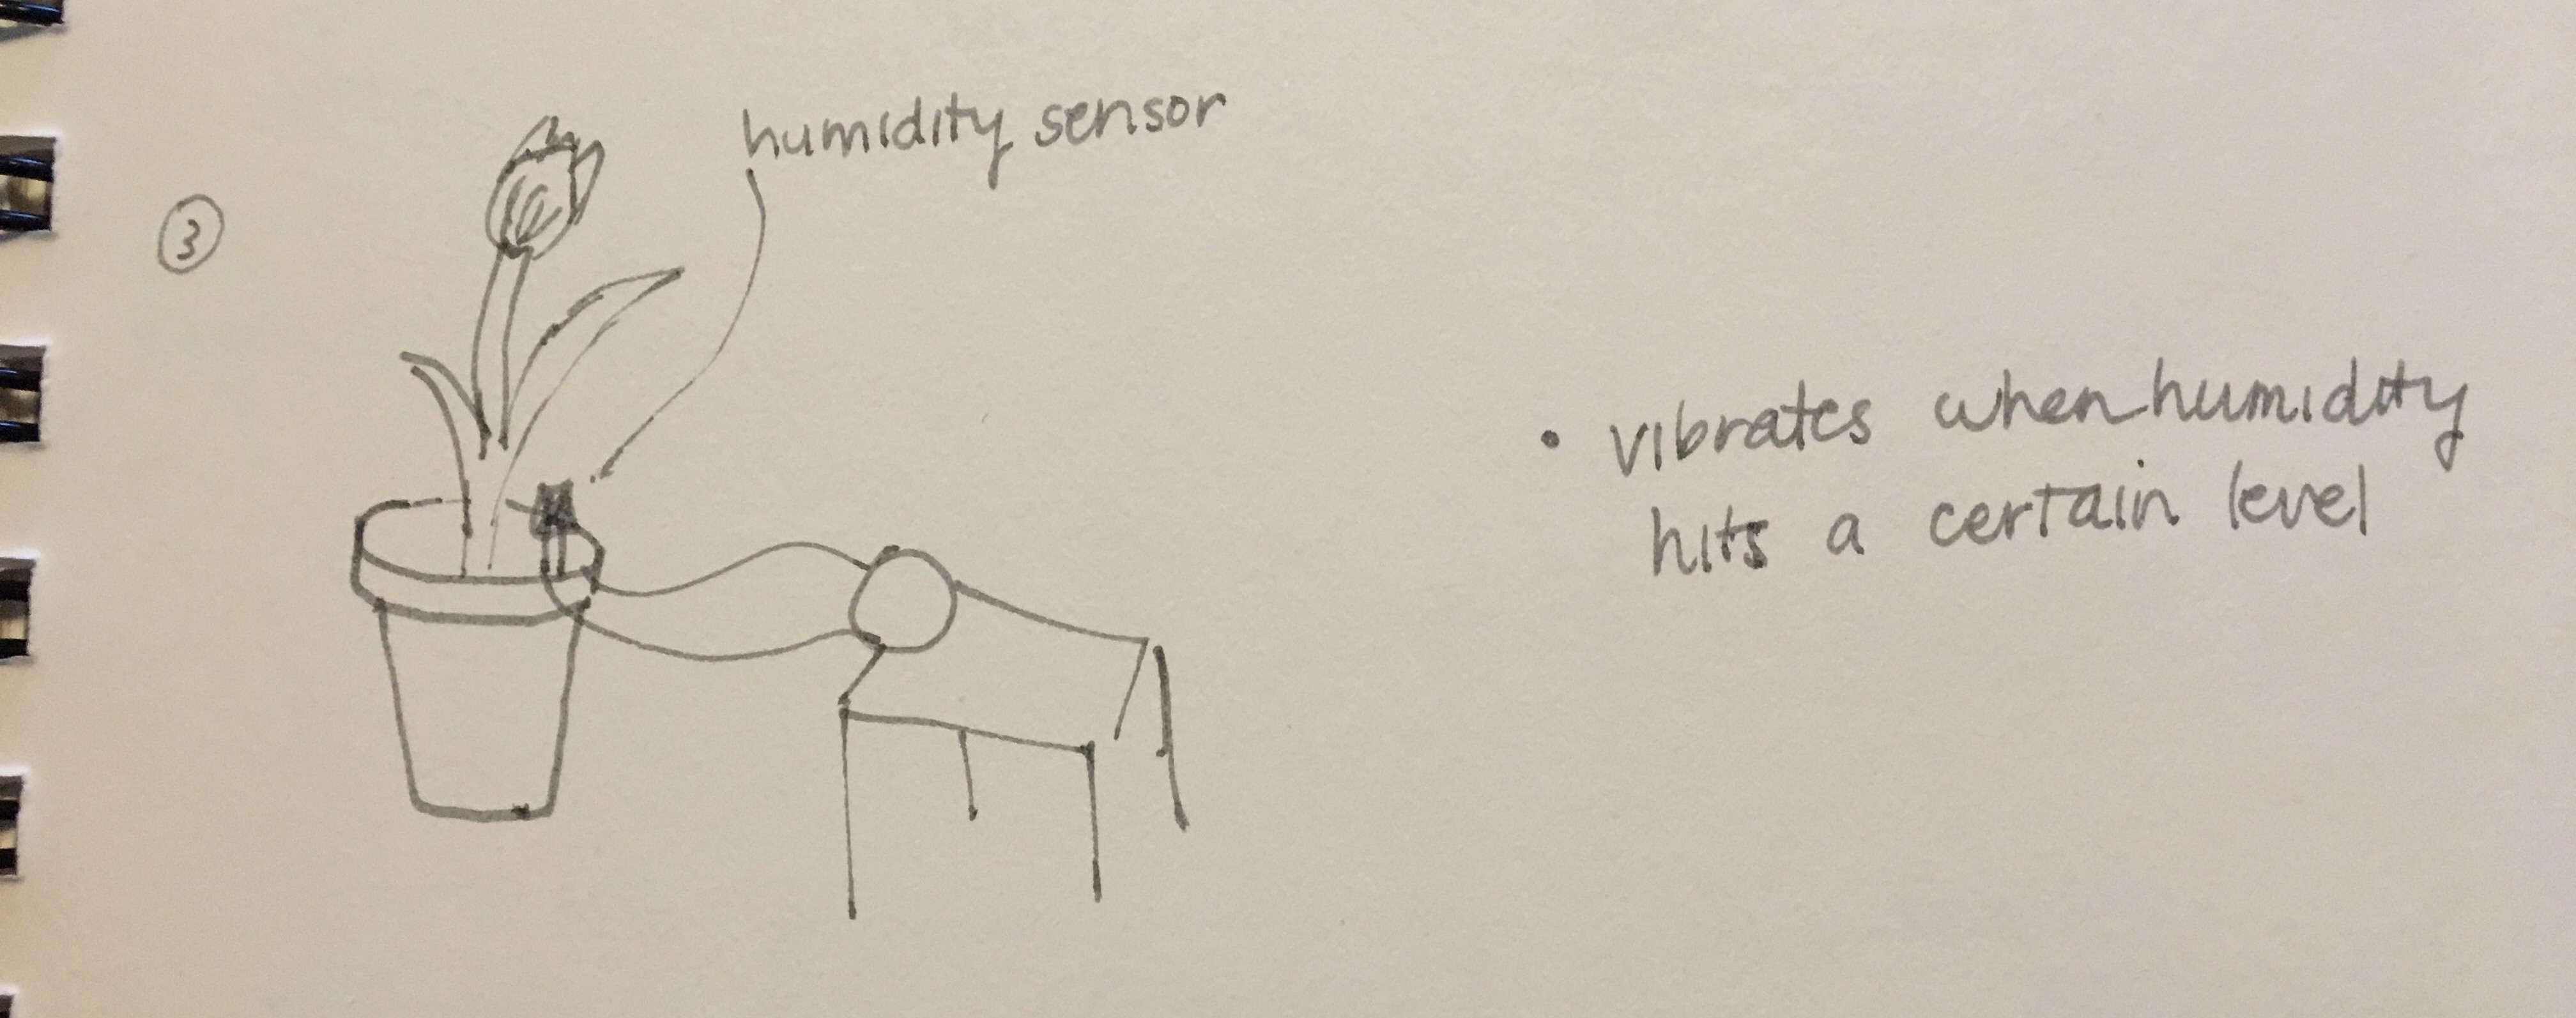 humidity sensor
③
• vibrates when humidity
hits a certain level